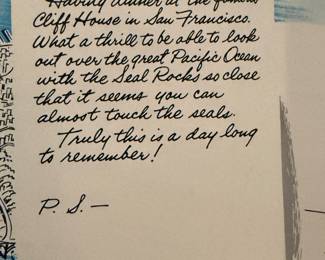 Having dinner at the famous
Cliff House in San Francisco.
What a thrill to be able to look
out over the great Pacific Ocean
with the Seal Rocks so close
that it seems you can
almost touch the seals.
Truly this is a day long
to remember!
P. S. —